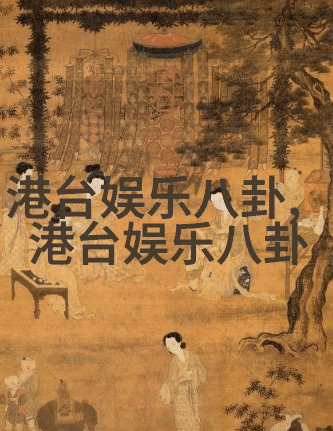 港台娱乐八卦，
港台娱乐八卦